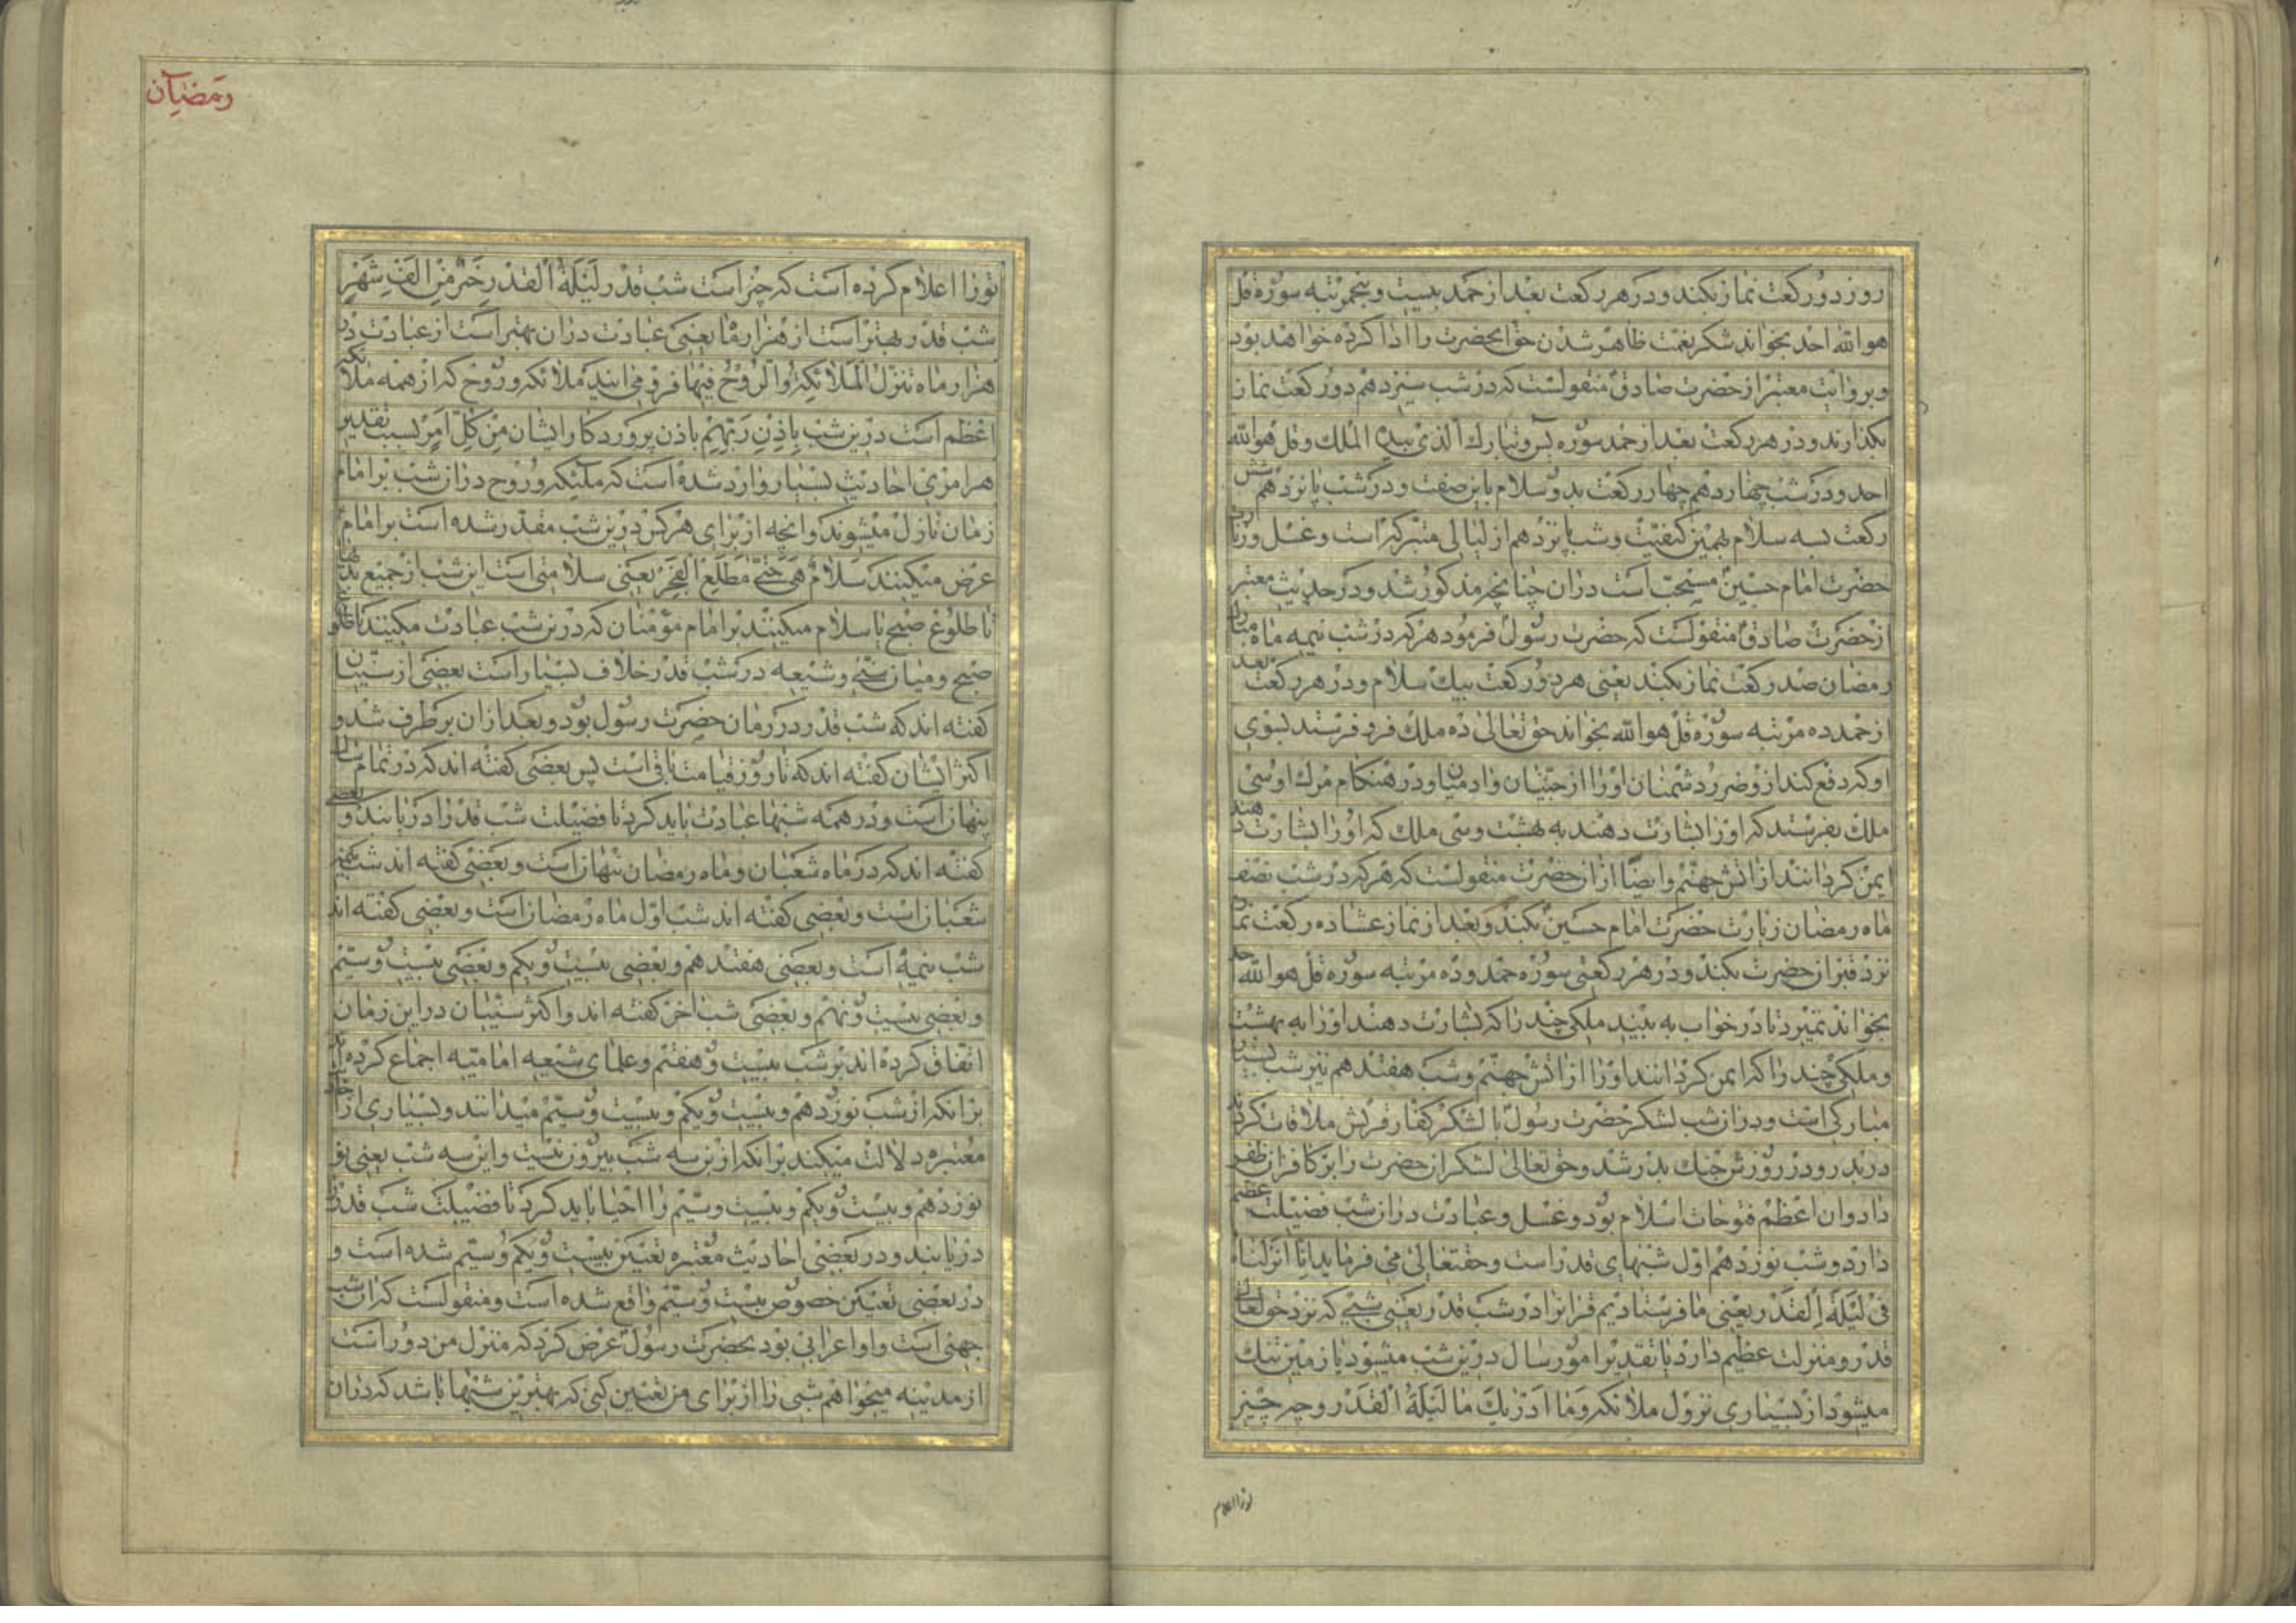 روز دو رکعت نماز بکند و در هر رکعت بعد از حمد بیست و پنجمرتبه سوره قل
هو الله احد بخواند شکر نعمت ظاهر شدن حق انحضرت را ادا کرده خواهد بود
و بروایت معتبر از حضرت صادق منقولست که در شب سیزدهم دو رکعت نماز
بکذارند و در هر رکعت بعد از حمد سوره یس و تبارک الذی بیده الملک و قل هو الله
احد و در شب چهاردهم چهار رکعت بدو سلام باین صفت و در شب پانزدهم شش
رکعت بسه سلام بهمین کیفیت و شب پانزدهم از لیالی متبرکه است و غسل و زیارت
حضرت امام حسین مستحب است دران چنانچه مذکور شد و در حدیث معتبر
از حضرت صادق منقولست که حضرت رسول فرمود هر که در شب نیمه ماه مبارک
رمضان صد رکعت نماز بکند یعنی هر دو رکعت بیک سلام و در هر رکعت بعد
از حمد ده مرتبه سوره قل هو الله بخواند حق تعالی ده ملک فرو فرستد بسوی
او که دفع کند ازو ضرر دشمنان او را از جنیان و ادمیان و در هنکام مرک او سی
ملک بفرستد که او را بشارت دهند به بهشت و سی ملک که او را بشارت دهند
ایمن کردانند از اتش جهنم و ایضا از ان حضرت منقولست که هر که در شب نصف
ماه رمضان زیارت حضرت امام حسین بکند و بعد از نماز عشا ده رکعت نماز
نزد قبر ان حضرت بکند و در هر رکعتی سوره حمد و ده مرتبه سوره قل هو الله احد
بخواند نمیرد تا در خواب به بیند ملکی چند را که بشارت دهند او را به بهشت
و ملکی چند را که ایمن کردانند او را از اتش جهنم و شب هفتدهم نیز شب بسیار
مبارکی است و در ان شب لشکر حضرت رسول با لشکر کفار قریش ملاقات کردند
در بدر و در روزش جنک بدر شد و حق تعالی لشکر ان حضرت را بر کافران ظفر
داد و ان اعظم فتوحات اسلام بود و غسل و عبادت در ان شب فضیلت عظیم
دارد و شب نوزدهم اول شبهای قدر است و حقتعالی می فرماید انا انزلناه
فی لیلة القدر یعنی ما فرستادیم قران را در شب قدر یعنی شبی که نزد حق تعالی
قدر و منزلت عظیم دارد یا تقدیر امور سال درین شب میشود یا زمین تنک
میشود از بسیاری نزول ملائکه و ما ادریک ما لیلة القدر و چه چیز
تو را اعلام
رمضان
تو را اعلام کرده است که چیز است شب قدر لیلة القدر خیر من الف شهر
شب قدر بهتر است از هزار ماه یعنی عبادت دران بهتر است از عبادت در
هزار ماه تنزل الملائکة و الروح فیها فرو می ایند ملائکه و روح که از همه ملائکه
اعظم است درین شب باذن ربهم باذن پروردکار ایشان من کل امر بسبب تقدیر
هر امری احادیث بسیار وارد شده است که ملئیکه و روح دران شب بر امام
زمان نازل میشوند و انچه از برای هر کس درین شب مقدر شده است بر امام
عرض میکنند سلام هی حتی مطلع الفجر یعنی سلامتی است این شب از جمیع بدیها
تا طلوع صبح یا سلام میکنند بر امام مؤمنان که درین شب عبادت میکنند تا طلوع
صبح و میان سنی و شیعه در شب قدر خلاف بسیار است بعضی از سنیان
کفته اند که شب قدر در زمان حضرت رسول بود و بعد ازان بر طرف شد و
اکثر ایشان کفته اند که تا روز قیامت باقی است پس بعضی کفته اند که در تمام سال
پنهان است و در همه شبها عبادت باید کرد تا فضیلت شب قدر را دریابند و بعضی
کفته اند که در ماه شعبان و ماه رمضان پنهان است و بعضی کفته اند شب نیمه
شعبان است و بعضی کفته اند شب اول ماه رمضان است و بعضی کفته اند
شب نیمه است و بعضی هفتدهم و بعضی بیست و یکم و بعضی بیست و سیم
و بعضی بیست و نهم و بعضی شب اخر کفته اند و اکثر سنیان در این زمان
اتفاق کرده اند بر شب بیست و هفتم و علمای شیعه امامیه اجماع کرده اند
برانکه از شب نوزدهم و بیست و یکم و بیست و سیم میدانند و بسیاری از احادیث
معتبره دلالت میکند برانکه ازین سه شب بیرون نیست و این سه شب یعنی
نوزدهم و بیست و یکم و بیست و سیم را احیا باید کرد تا فضیلت شب قدر را
دریابند و در بعضی احادیث معتبره تعیین بیست و یکم و سیم شده است و
در بعضی تعیین خصوص بیست و سیم واقع شده است و منقولست که ان شب
جهنی است و او اعرابی بود بحضرت رسول عرض کرد که منزل من دور است
از مدینه میخواهم شبی را از برای من تعیین کنی که بهترین شبها باشد که دران